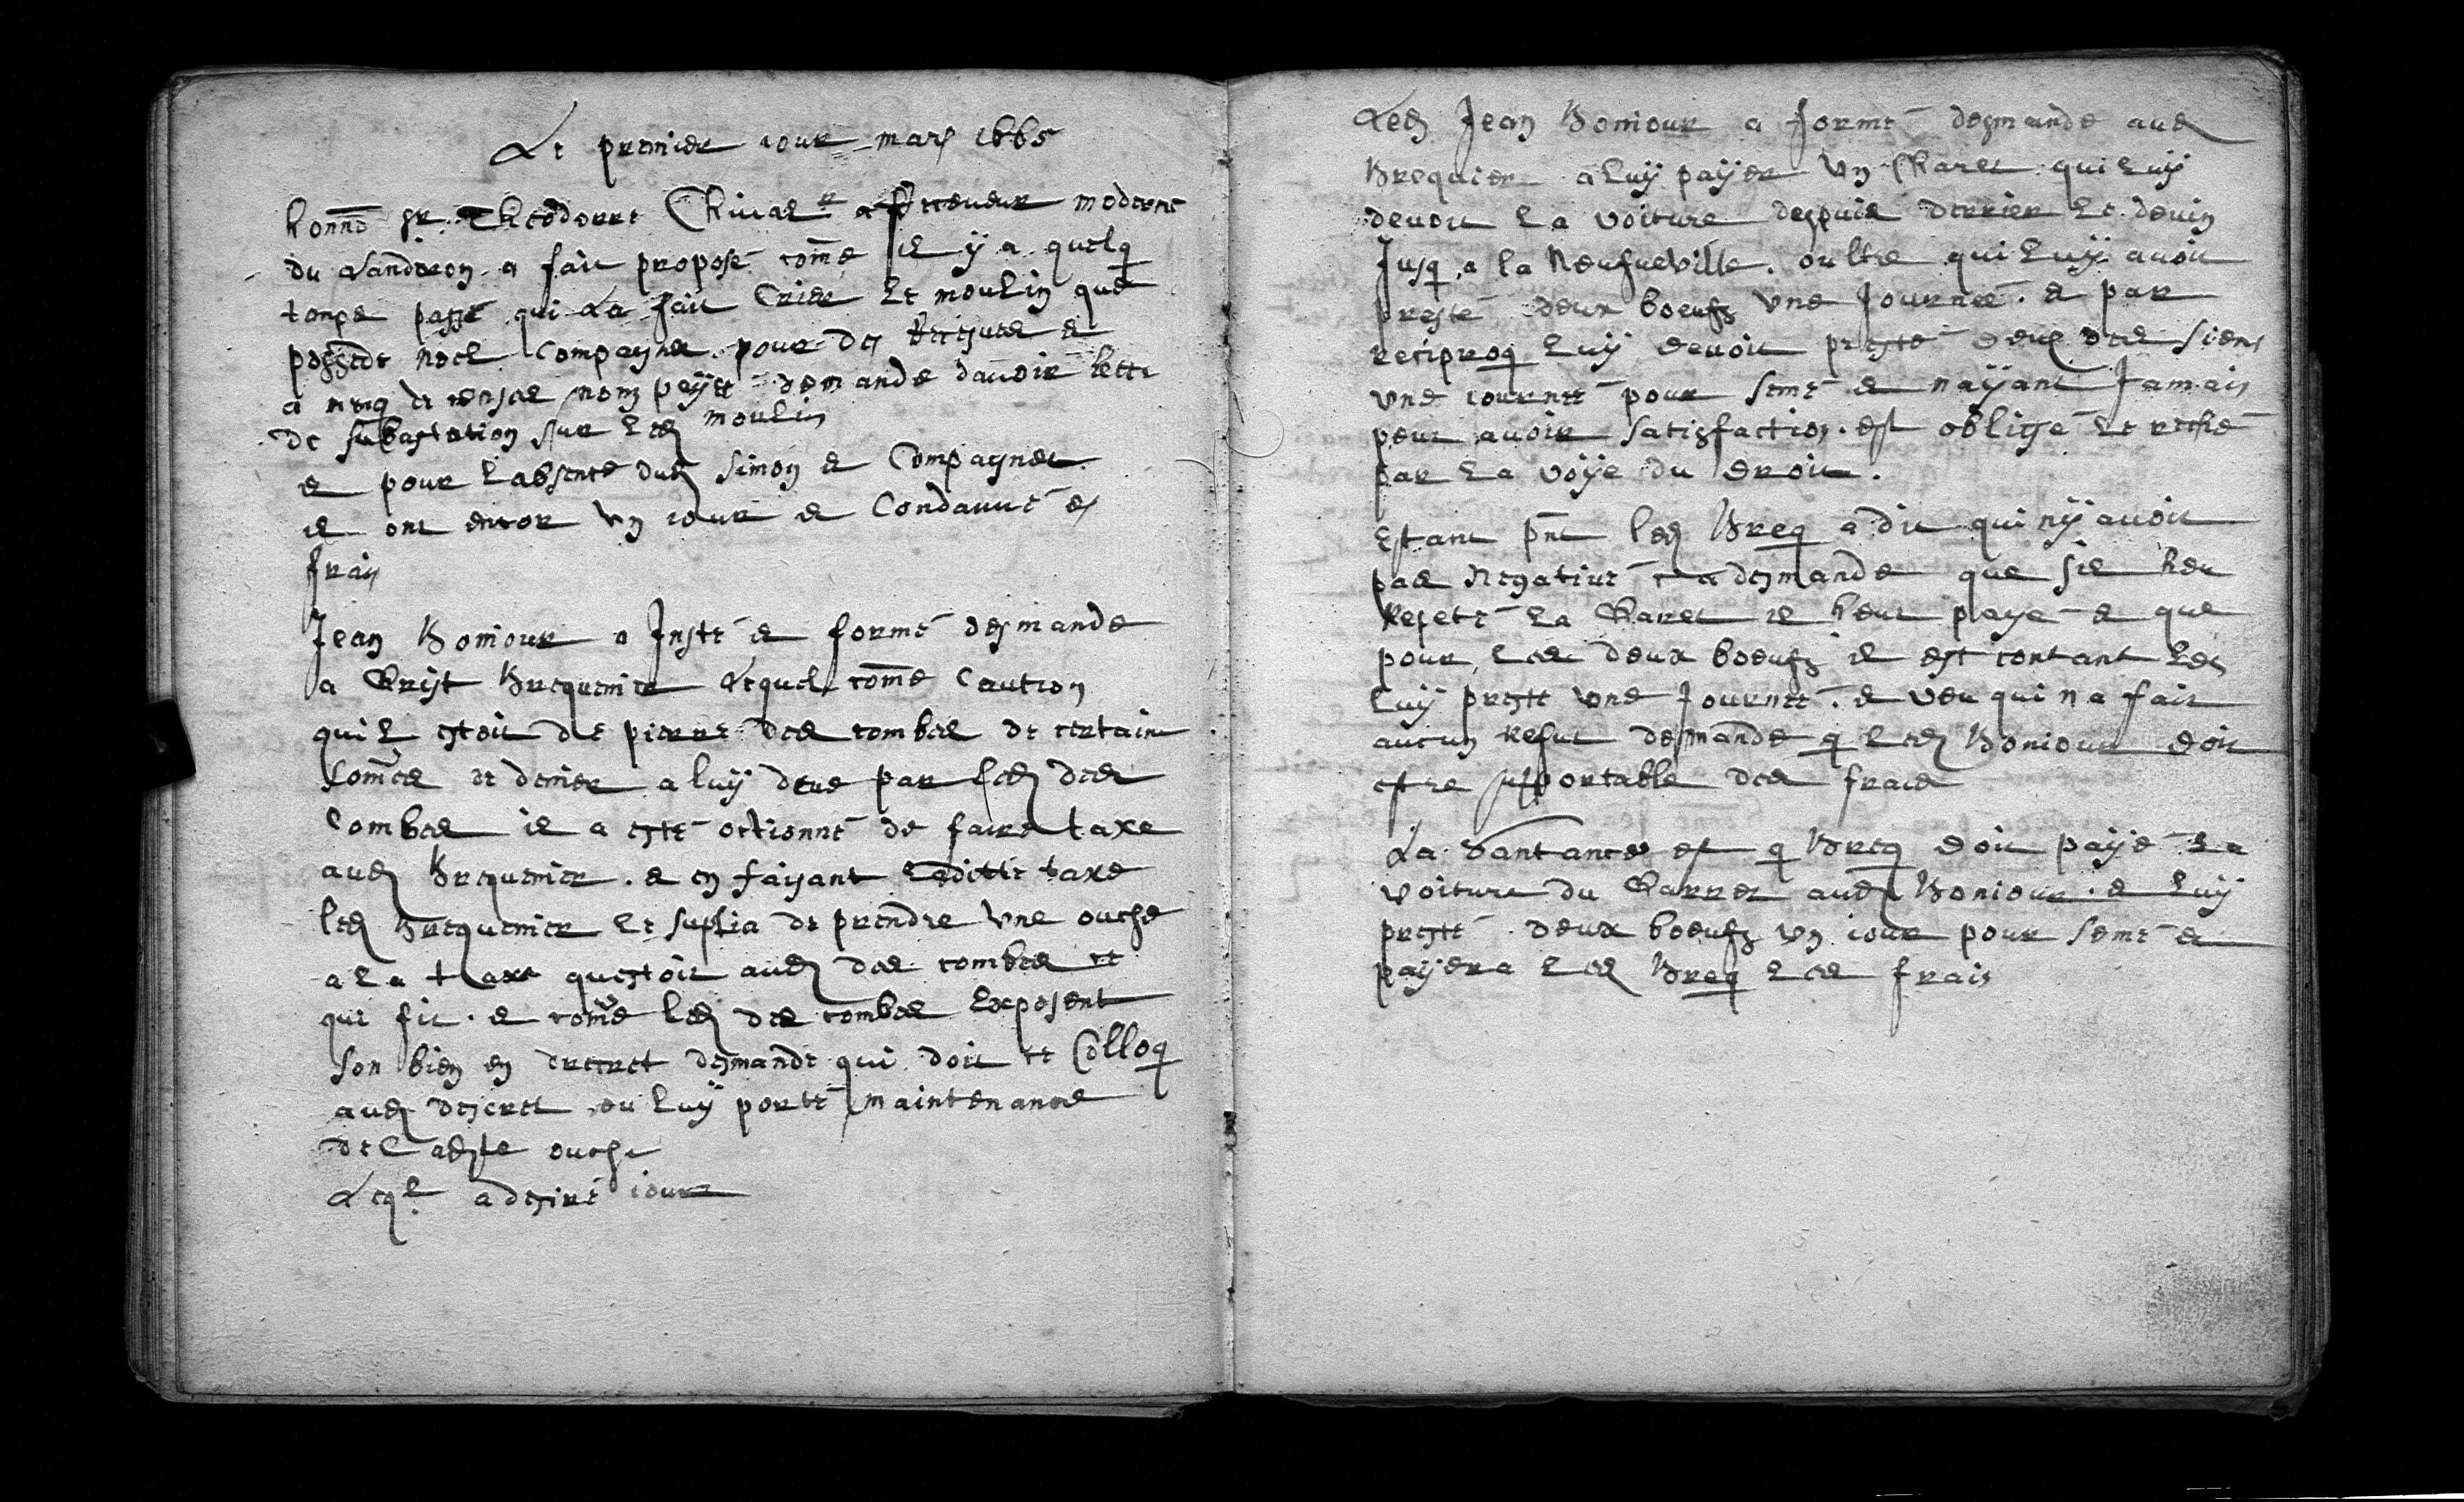 Le premier iour mars 1665
honn̄e sr Theodorre Chiual r receueur moderne
du Landeron a fait proposé com̄e il ÿ a quelq
temps passé qui La fait Crier le moulin que
possede noel Compagnet pour des &
a mṛq de censse non payee demande dauoir lettre
de subastation sur led moulin
et pour labsence dud simon et Compagnet
il ont encor vn iour et Condamné es
frais
Jean Boniour a Insté et formé desmande
a Crist Brequenier Lequel com̄e Caution
quil estoit de pierre des combes de certaine
som̄es de denier a luÿ deue par led des
Combes il a esté octionné de faire taxe
aud Brequenier . et en faisant laditte taxe
led Brequenier le suplia de prendre vne ouche
a la taxe questoit aud des combes ce
qui fit . et com̄e led des combes Exposent
son bien en decret desmande qui doit ce Colloq
aud descret ou luÿ porté maintenance
de ladite ouche
Leql a desiré iour
Led Jean Boniour a formé desmande aud
Brequier a luÿ paÿer vn Charet qui luÿ
deuoit la voiture despuis derrier le deuin
Jusq a la Neufueville . oultre qui luÿ auoit
presté deux boeufz vne Journee . et par
reciproq luÿ deuoit presté deux des siens
vne iournee pour semé et naÿant Jamais
peut auoir satisfaction . est obligé le rechē
par la voÿe du droit .
Estant pn̄t led Breq a dit qui nÿ auoit
pas Negatiue a desmande que sil heu
Repeté la Charet il heut paye et que
pour les deux boeufz il est contant les
luÿ preste vne Journee . et veu qui n a fait
aucun Refus desmande q led Boniour doit
estre suportable des frais
La Santance est q Breq doit paÿé la
voiture du Charret aud Boniour . et luÿ
presté deux boeufz vn iour pour semé et
paÿera led Breq les frais